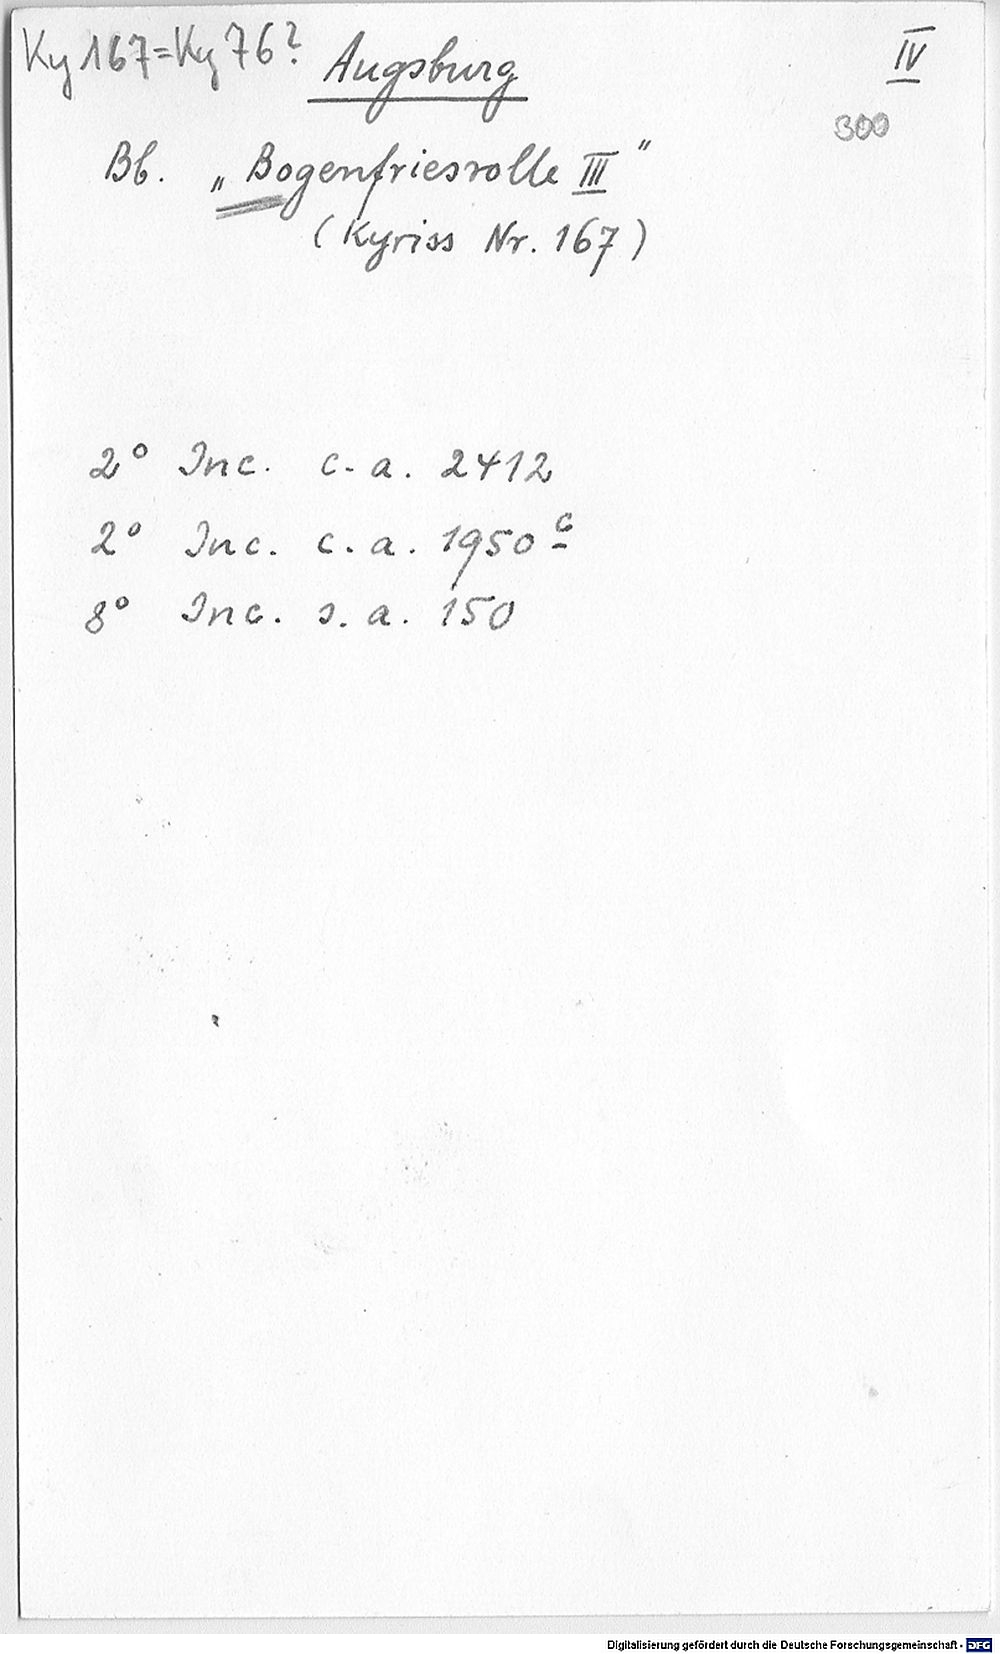 Ky 167 = Ky 76?
Augsburg
IV
300
Bb. „Bogenfriesrolle III"
(Kyriss Nr. 167)
2° Inc. c. a. 2412
2° Inc. c. a. 1950 c
8° Inc. s. a. 150
Digitalisierung gefördert durch die Deutsche Forschungsgemeinschaft - DFG